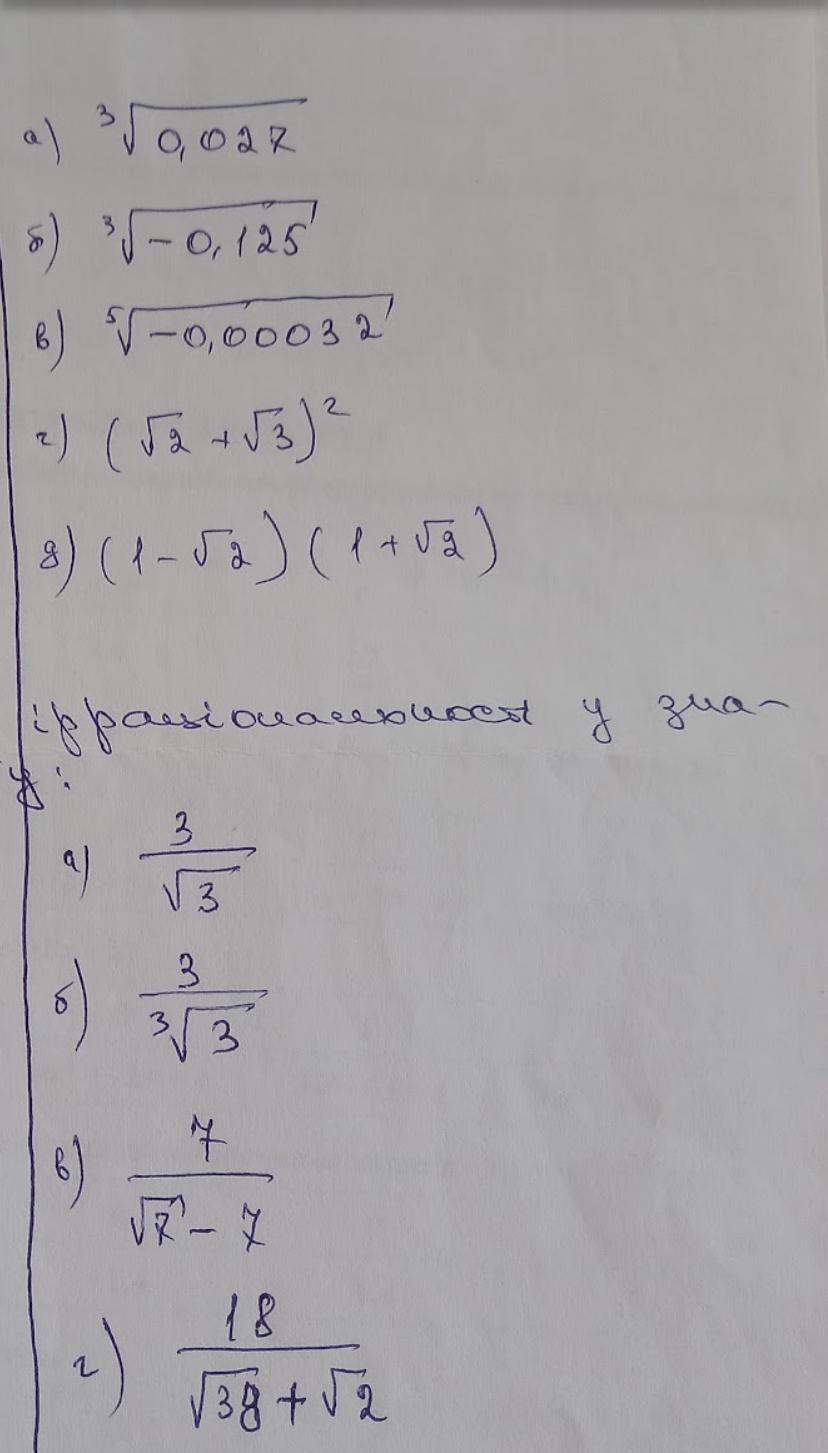 а) ³√0,027
б) ³√-0,125
в) ⁵√-0,00032
г) (√2 + √3)²
д) (1 - √2)(1 + √2)
ірраціональност у зна-
у:
а) 3/√3
б) 3/³√3
в) 7/(√7 - 7)
г) 18/(√38 + √2)